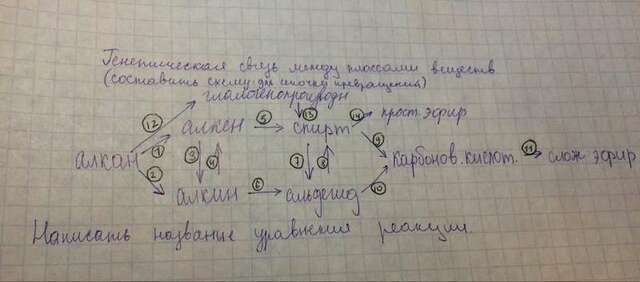 Генетическая связь между классами веществ
(составить схему для цепочки превращений)
галогенопроизводн
12 13 14 прост эфир
алкен 5 спирт
алкан 1 3 4 7 8 9 карбонов. кислот. 11 слож эфир
2
алкин 6 альдегид 10
Написать название уравнения реакции